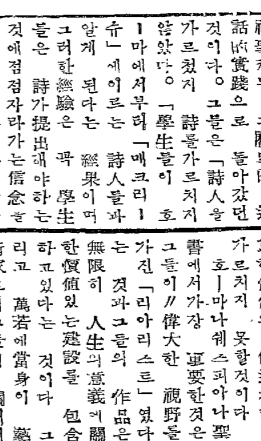 話的實踐으로 돌아갔던
것이다。그들은「詩人을
가르쳤지 詩를가르치지
않았다。「學生들이 호
ー마에서부터「매크리ー
슈」에이르는 詩人들과
알게 된다는 經果이며
그러한經驗은 꼭 學生
들은 詩가提出해야하는
것에점점자라가는信念을
가르치지 못할것이다
호ー마나쉐스피아나聖
書에서가장 重要한것은
그들이〃偉大한 視野를
가진「리아리스트」였다
는 것과그들의 作品은
無限히 人生의意義에關
한價値있는建設를 包含
하고있다는 것이다 그
리고 萬若에當身이 藝